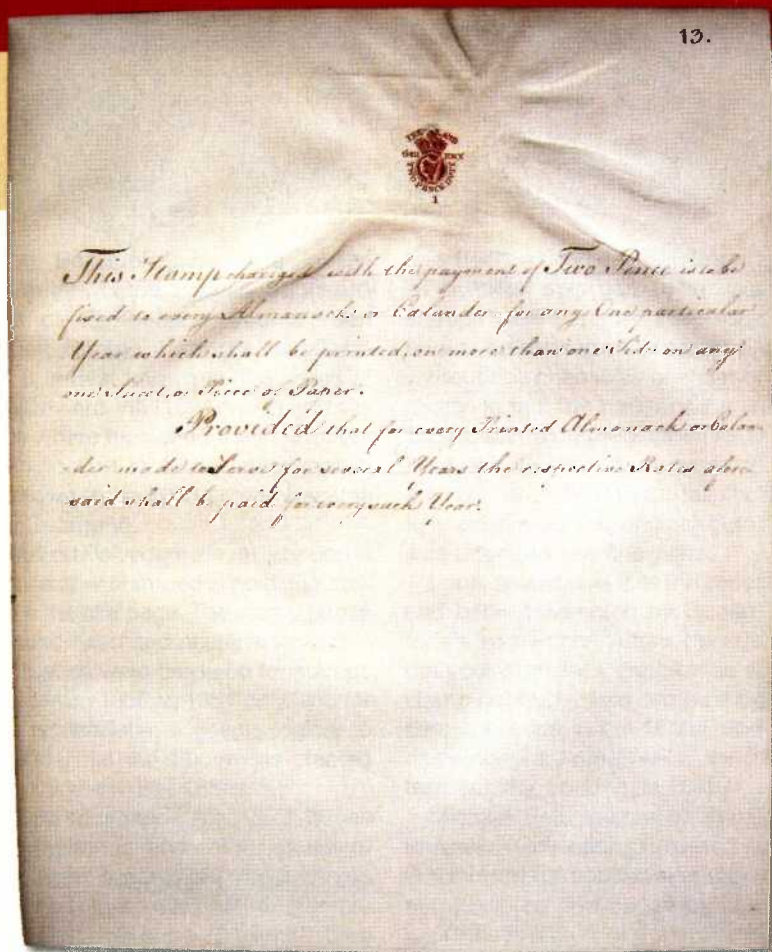 13.
TWO PENCE
1
This Stamp charged with the payment of Two Pence is to be
fixed to every Almanack or Calander for any One particular
Year which shall be printed on more than one Side on any
one Sheet or Piece of Paper.
Provided that for every Printed Almanack or Calan-
-der made to Serve for several Years the respective Rates afore
said shall be paid for every such Year.